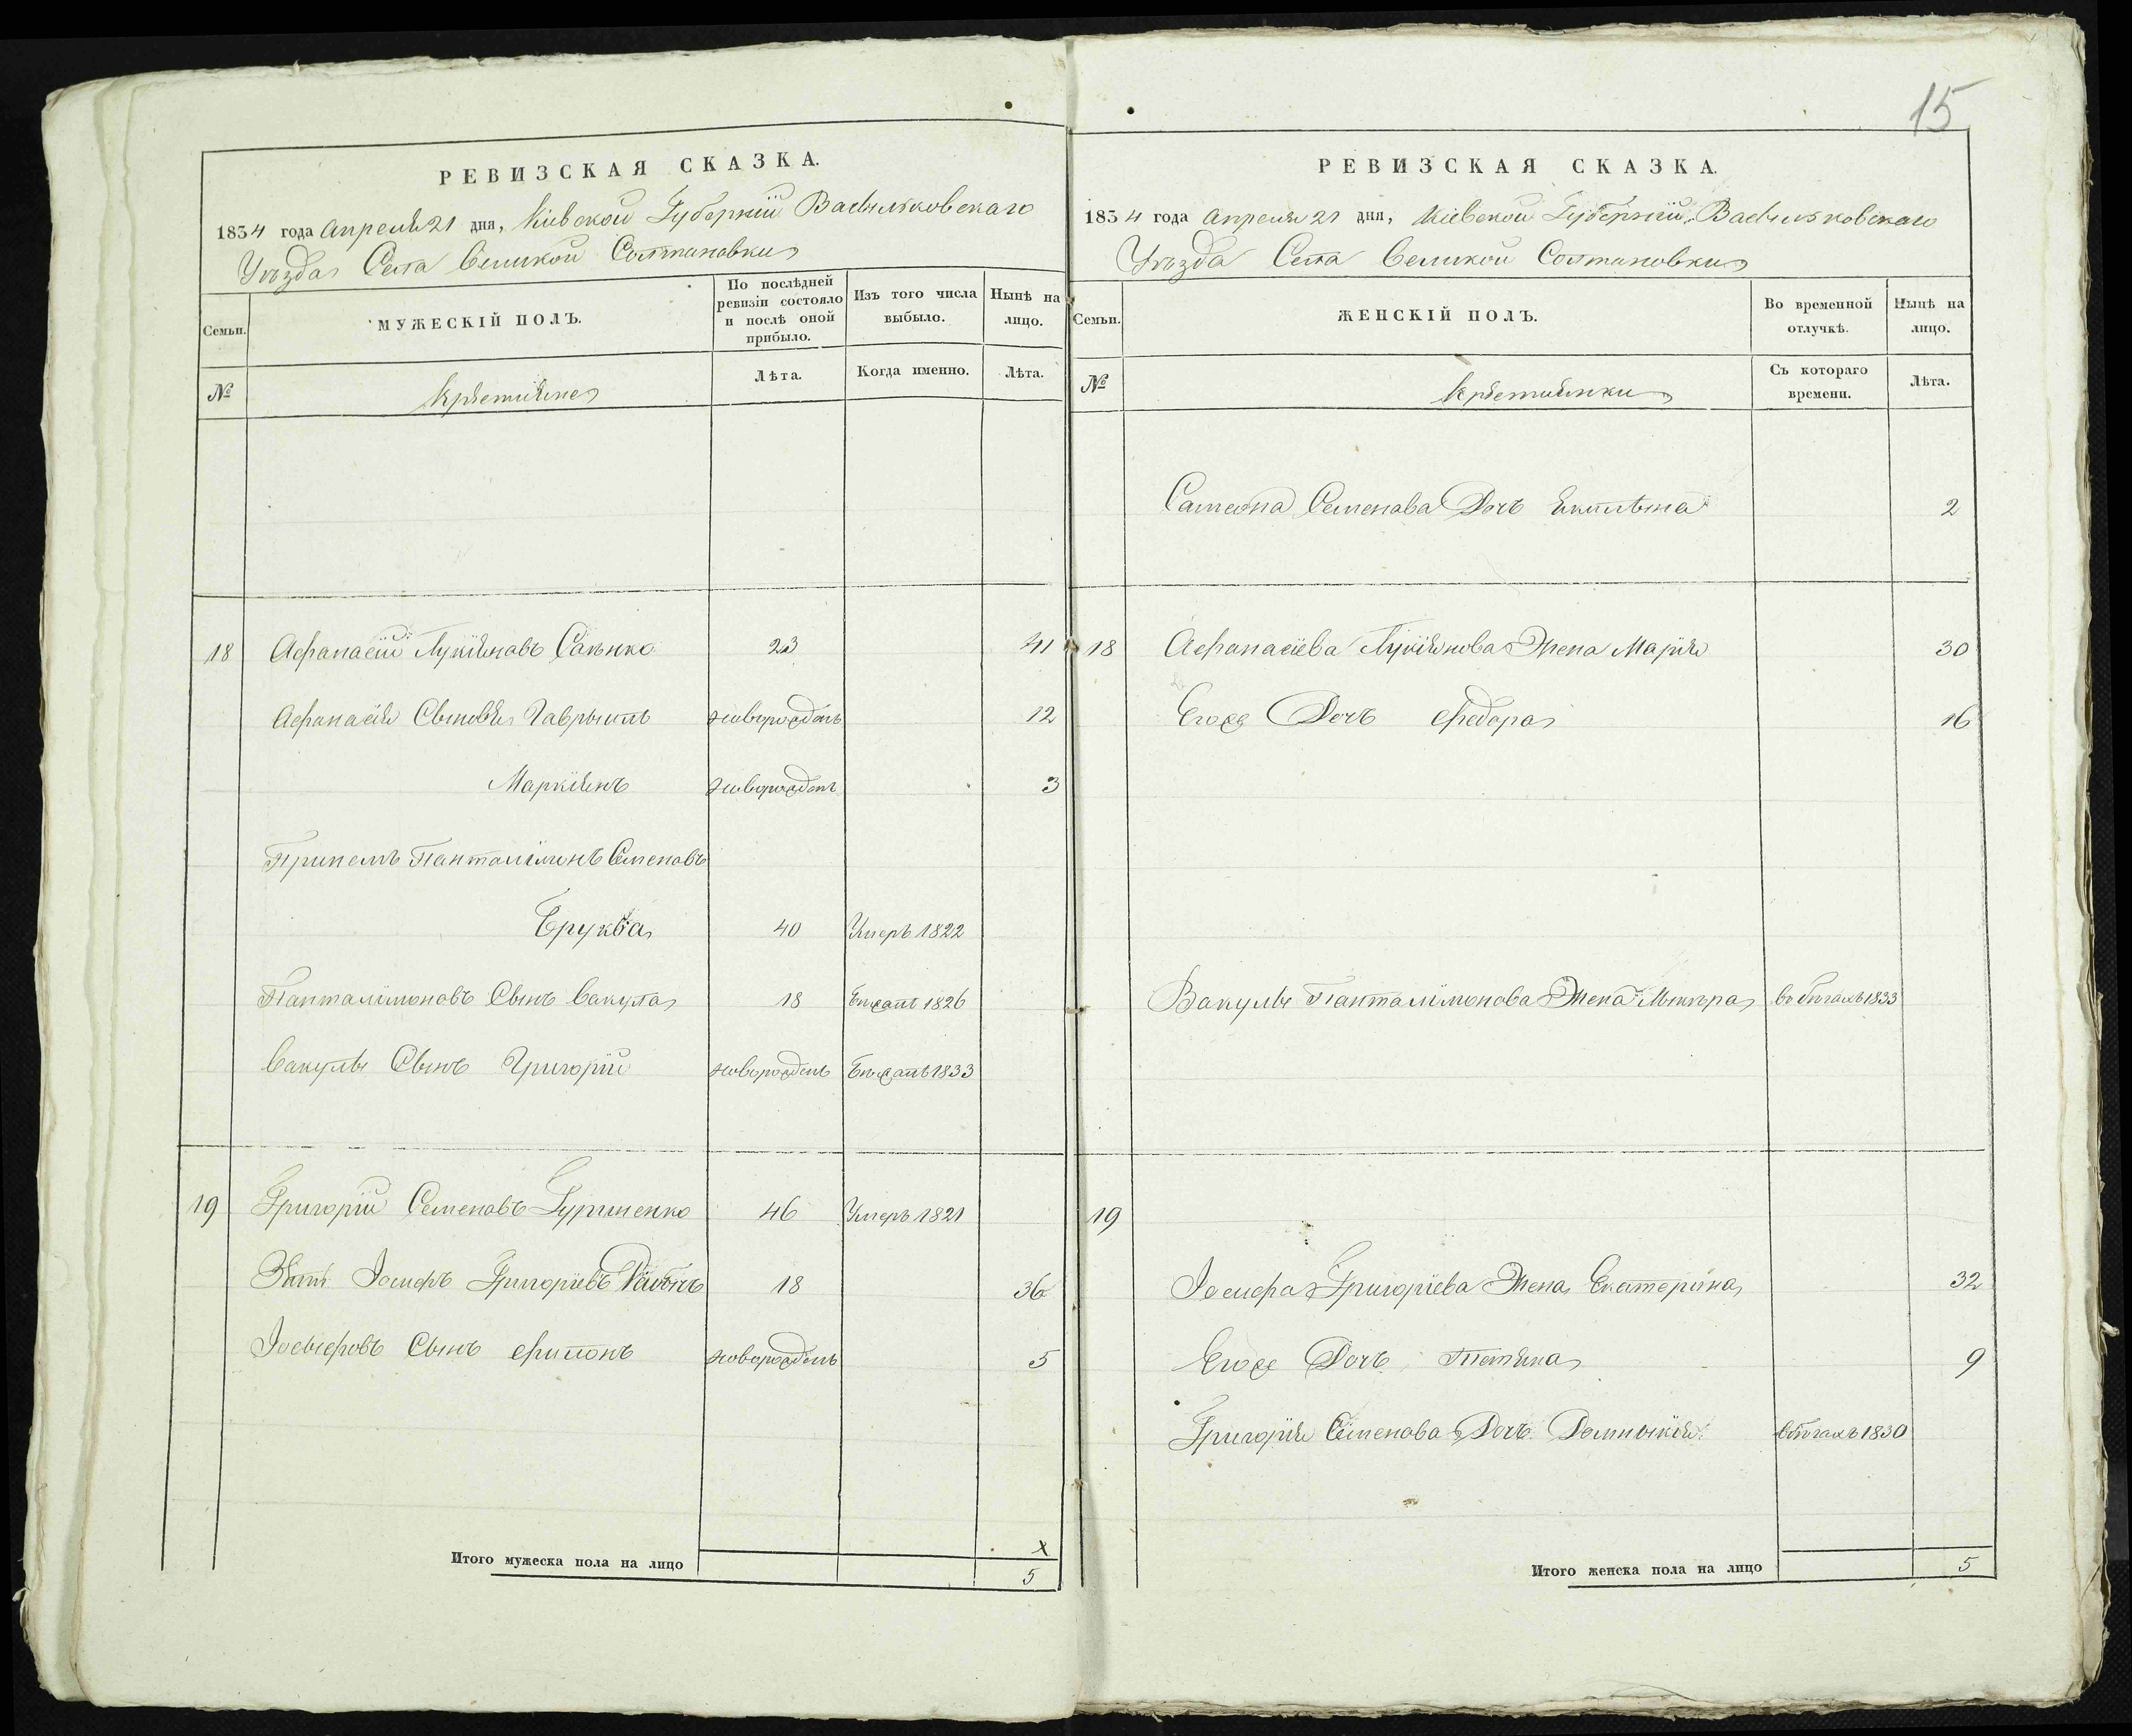 15
РЕВИЗСКАЯ СКАЗКА.
1834 года Апреля 21 дня, Кіевской Губерніи Васильковскаго
Уѣзда Села Великой Солтановки
Семьи.
МУЖЕСКІЙ ПОЛЪ.
По послѣдней ревизіи состояло и послѣ оной прибыло.
Изъ того числа выбыло.
Нынѣ на лицо.
№
Крестьяне
Лѣта.
Когда именно.
Лѣта.
18 Афанасій Лукіяновъ 23 41
Афанасія Сыновья Гаврыилъ новорожденъ 12
Маркіянъ новорожденъ 3
Пантолимонъ Семеновъ
Бруква 40 Умеръ 1822
Панталимоновъ Сынъ Вакула 18 Бѣжалъ 1826
Вакулы Сынъ Григорій новорожденъ Бѣжалъ 1833
19 Григорій Семеновъ Гуриненко 46 Умеръ 1821
Зять Іосифъ Григоріевъ 18 36
Іосыфовъ Сынъ Филонъ новорожденъ 5
Итого мужеска пола на лицо 5
РЕВИЗСКАЯ СКАЗКА.
1834 года Апреля 21 дня, Кіевской Губерніи, Васильковскаго
Уѣзда Села Великой Солтановки
Семьи.
ЖЕНСКІЙ ПОЛЪ.
Во временной отлучкѣ.
Нынѣ на лицо.
№
Крестьянки
Съ котораго времени.
Лѣта.
Семенова Дочь 2
18 Афанасіева Лукіянова Жена Марія 30
Егоже Дочь Федора 16
Вакулы Панталимонова Жена въ бѣгахъ 1833
19
Іосифа Григоріева Жена Екатерина 32
Егоже Дочь Тетяна 9
Григорія Семенова Дочь Домныкія вбѣгахъ 1830
Итого женска пола на лицо 5